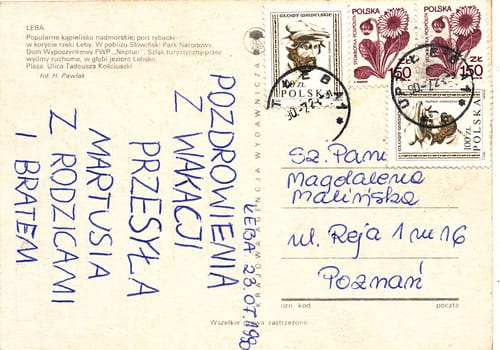 ŁEBA
Popularne kąpielisko nadmorskie, port rybacki
w korycie rzeki Łeby. W pobliżu Słowiński Park Narodowy.
Dom Wypoczynkowy FWP „Neptun". Szlak turystyczny przez
wydmy ruchome, w głębi jezioro Łebsko.
Plaża. Ulica Tadeusza Kościuszki
fot. H. Pawlak
POZDROWIENIA
Z WAKACJI
PRZESYŁA
MARTUSIA
Z RODZICAMI
I BRATEM
ŁEBA 23.07.1990
KRAJOWA AGENCJA WYDAWNICZA
100 ZŁ
POLSKA
POLSKA
150 ZŁ
POLSKA
150 ZŁ
100 ZŁ
POLSKA
ŁEBA 1
Sz. Pani
Magdalena
Malińska
ul. Reja 1 m 16
Poznań
kod
poczta
Wszelkie prawa zastrzeżone